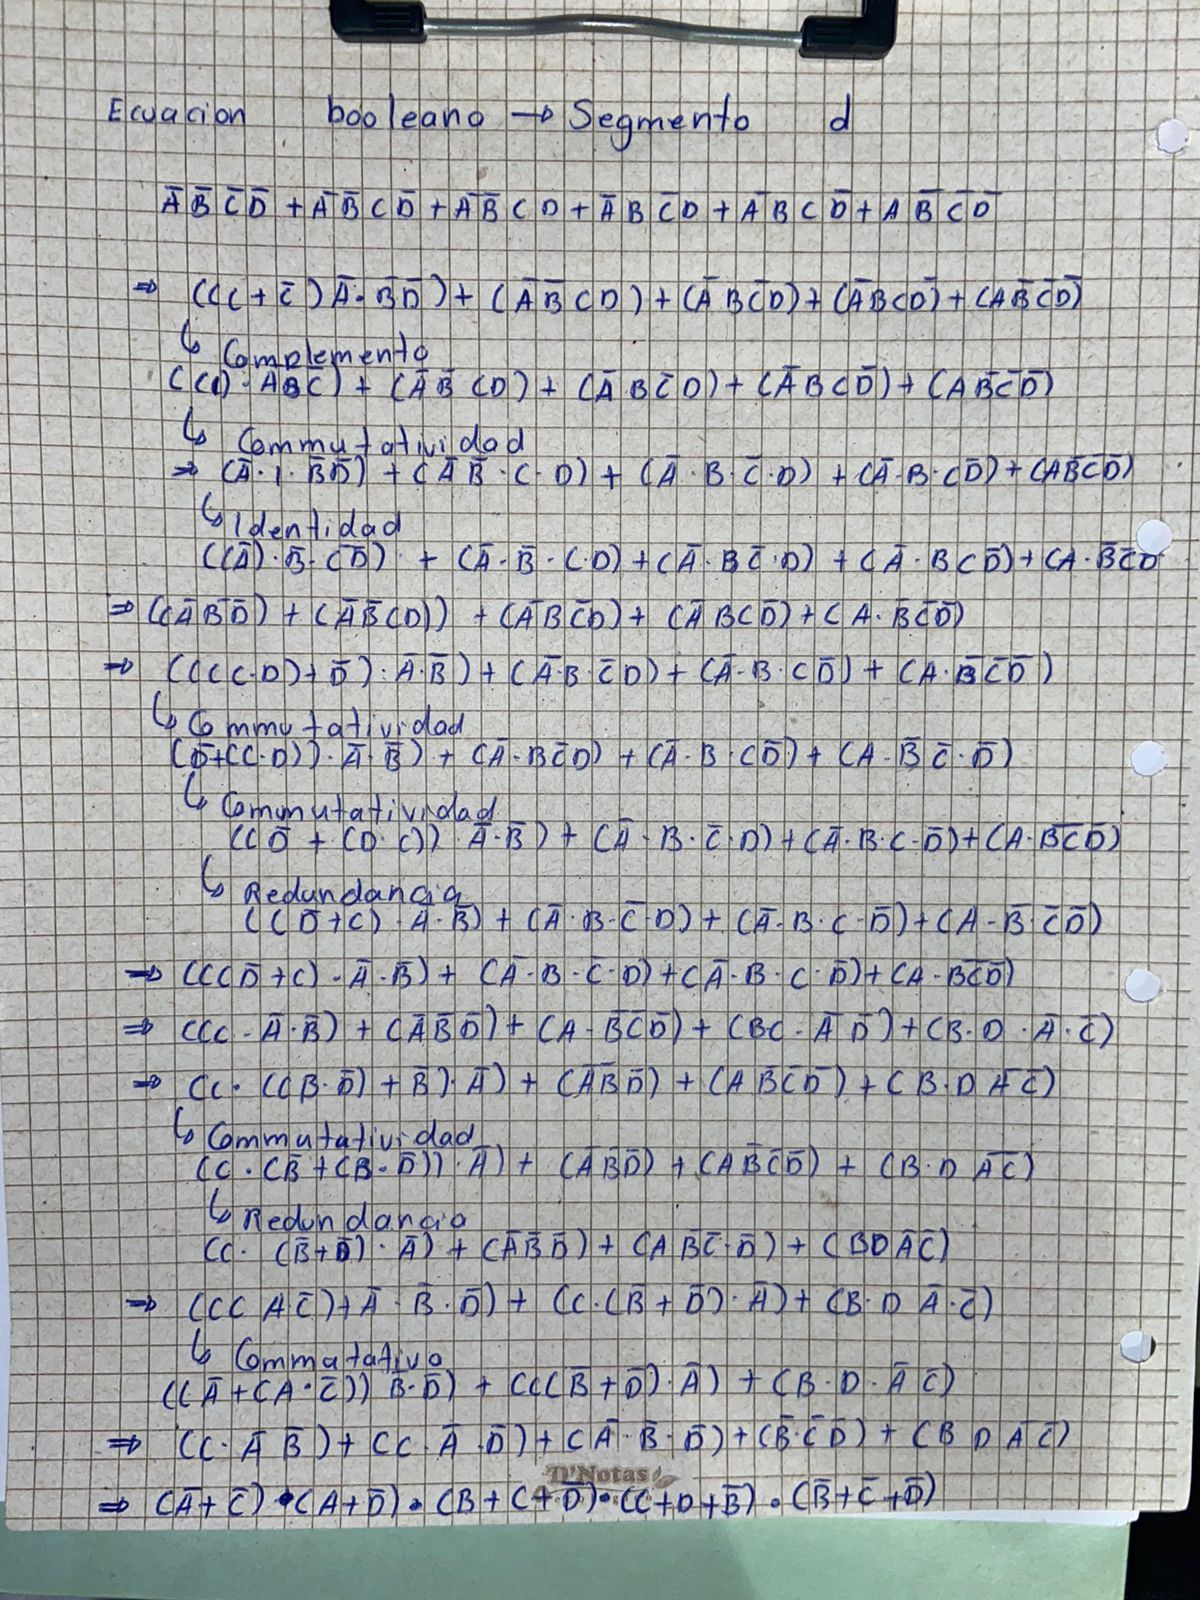 Ecuacion booleano → Segmento d
A̅ B̅ C̅ D̅ + A̅ B̅ C D̅ + A̅ B̅ C D + A̅ B C̅ D + A̅ B C D̅ + A B̅ C̅ D̅
⇒ ((C + C̅) A̅ · B̅ D̅) + (A̅ B̅ C D) + (A̅ B C̅ D) + (A̅ B C D̅) + (A B̅ C̅ D̅)
↳ Complemento
((1) · A̅ B̅ C̅) + (A̅ B̅ C D) + (A̅ B C̅ D) + (A̅ B C D̅) + (A B̅ C̅ D̅)
↳ Commutatividad
⇒ (A̅ · 1 · B̅ D̅) + (A̅ B̅ · C · D) + (A̅ · B · C̅ · D) + (A̅ · B · C D̅) + (A B̅ C̅ D̅)
↳ Identidad
((A̅) · B̅ · C̅ D̅) + (A̅ · B̅ · C · D) + (A̅ · B C̅ · D) + (A̅ · B C D̅) + (A · B̅ C̅ D̅
⇒ ((A̅ B̅ D̅) + (A̅ B̅ C D)) + (A̅ B C̅ D) + (A̅ B C D̅) + (A · B̅ C̅ D̅)
⇒ (((C · D) + D̅) · A̅ · B̅) + (A̅ · B · C̅ D) + (A̅ · B · C D̅) + (A · B̅ C̅ D̅)
↳ Commutatividad
(D̅ + (C · D)) · A̅ · B̅) + (A̅ · B C̅ D) + (A̅ · B · C D̅) + (A · B̅ C̅ · D̅)
↳ Commutatividad
((D̅ + (D · C)) · A̅ · B̅) + (A̅ · B · C̅ · D) + (A̅ · B · C · D̅) + (A · B̅ C̅ D̅)
↳ Redundancia
((D̅ + C) · A̅ · B̅) + (A̅ · B · C̅ D) + (A̅ · B · C · D̅) + (A · B̅ · C̅ D̅)
⇒ (((D̅ + C) · A̅ · B̅) + (A̅ · B · C̅ · D) + (A̅ · B · C · D̅) + (A · B̅ C̅ D̅)
⇒ ((C · A̅ · B̅) + (A̅ B̅ D̅) + (A · B̅ C̅ D̅) + (B C · A̅ D̅) + (B · D · A̅ · C̅)
⇒ (C · ((B · D̅) + B̅) · A̅) + (A̅ B̅ D̅) + (A B̅ C̅ D̅) + (B · D A̅ C̅)
↳ Commutatividad
(C · (B̅ + (B · D̅)) · A̅) + (A̅ B̅ D̅) + (A B̅ C̅ D̅) + (B · D A̅ C̅)
↳ Redundancia
(C · (B̅ + D̅) · A̅) + (A̅ B̅ D̅) + (A B̅ C̅ · D̅) + (B D A̅ C̅)
⇒ (((A C̅) + A̅ · B̅ · D̅) + (C · (B̅ + D̅) · A̅) + (B · D A̅ · C̅)
↳ Commutativo
((A̅ + (A · C̅)) B̅ · D̅) + (C((B̅ + D̅) · A̅) + (B · D · A̅ C̅)
⇒ (C · A̅ B̅) + (C · A̅ · D̅) + (A̅ · B̅ · D̅) + (B̅ · C̅ D̅) + (B D A̅ C̅)
D'Notas
⇒ (A̅ + C̅) · (A + D̅) · (B + C + D̅) · (C + D + B̅) · (B̅ + C̅ + D̅)